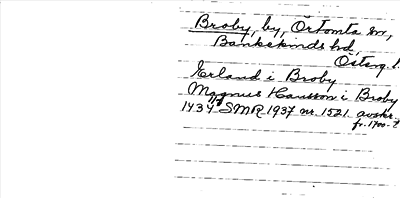 Broby, by, Örtomta sn,
Bankekinds hd,
Österg. l.
Erland i Broby
Magnus Hansson i Broby
1434 11/8 SMR 1937 nr. 1521. avskr.
fr. 1700-t